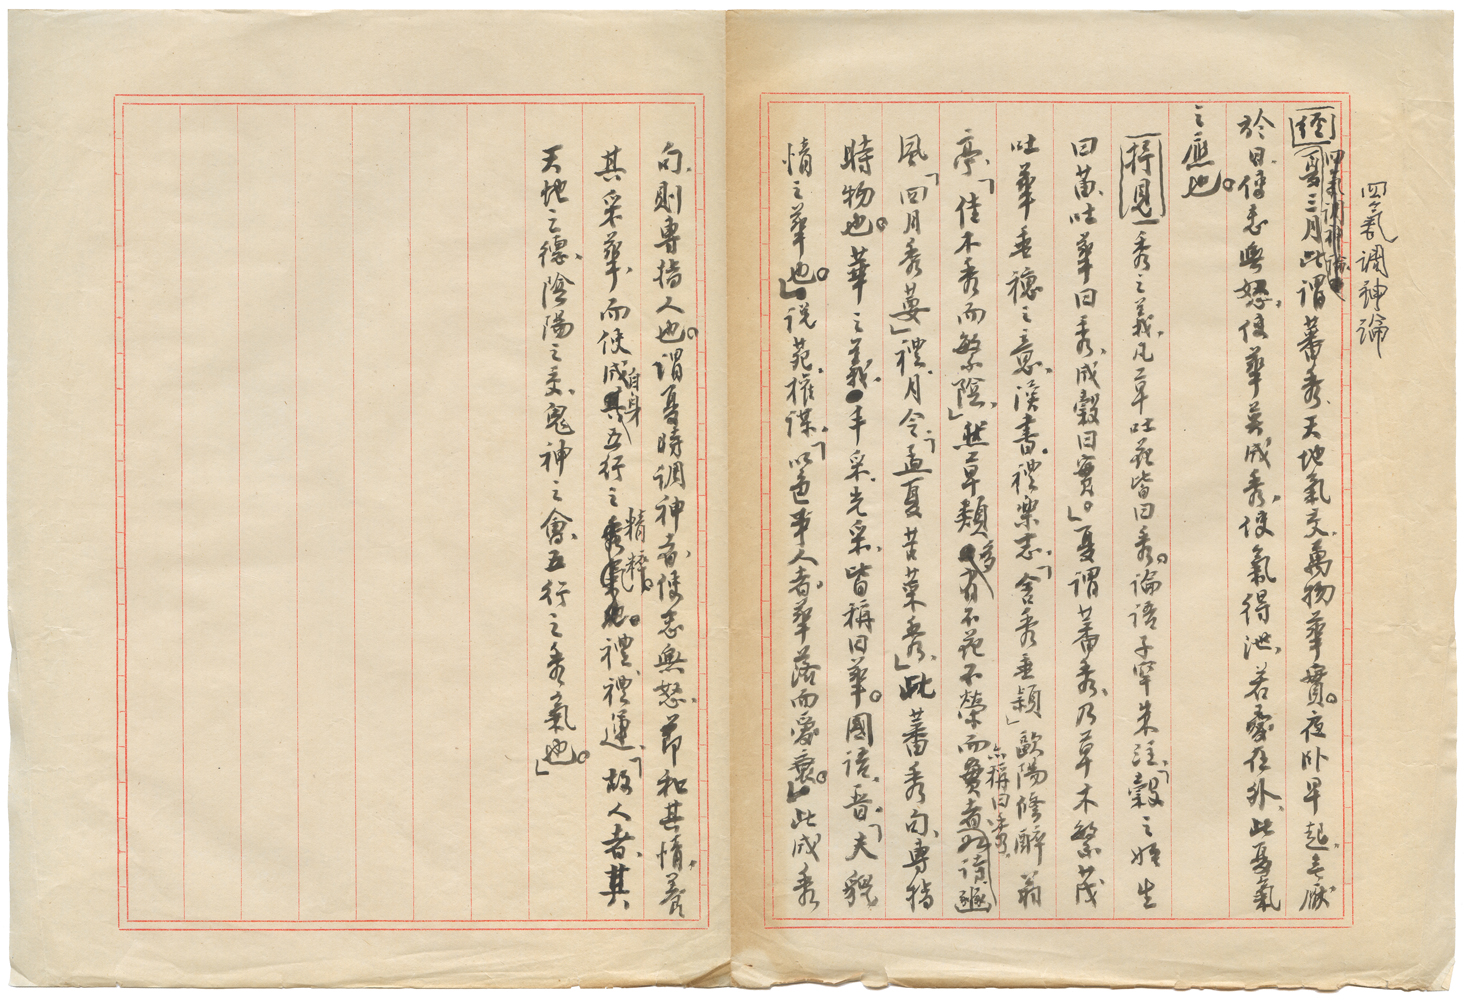 四氣調神論
經 四氣調神論曰 夏三月此謂蕃秀、天地氣交、萬物華實。夜卧早起、無厭
於日、使志無怒、使華英成秀、使氣得泄、若所愛在外、此夏氣
之應也。
擇見 秀之義、凡草吐花皆曰秀。論語子罕朱注、「穀之始生
曰苗、吐華曰秀、成穀曰實。」夏謂蕃秀、乃草木繁茂
吐華垂穗之意、漢書、禮樂志、「含秀垂穎」歐陽修醉翁
亭、「佳木秀而繁陰、」然草類多有不花不榮而實者亦稱曰秀、詩豳
風、「四月秀葽」禮、月令、「孟夏苦菜秀、」此蕃秀句、專指
時物也。華之義、丰采、光采、皆稱曰華。國語、晉、「夫貌
情之華也。」説苑、權謀、「以色事人者、華落而愛衰。」此成秀
句、則專指人也。謂夏時調神者、使志無怒、節和其情、養
其采華、而使成自身五行之精粹。禮、禮運、「故人者、其
天地之德、陰陽之交、鬼神之會、五行之秀氣也。」